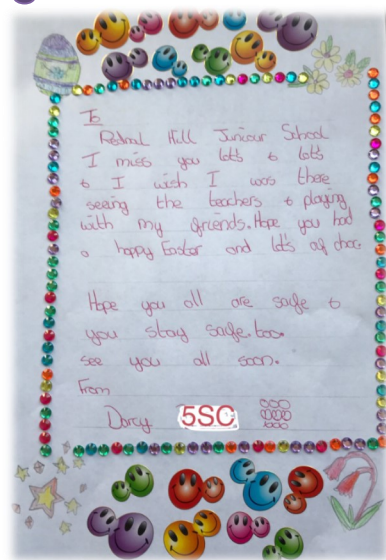 To
Rednal Hill Juniour School
I miss you lots & lots
& I wish I was there
seeing the teachers & playing
with my friends. Hope you had
a happy Easter and lots of choc.
Hope you all are safe &
you stay safe too.
see you all soon.
From
Darcy 5SC ooo